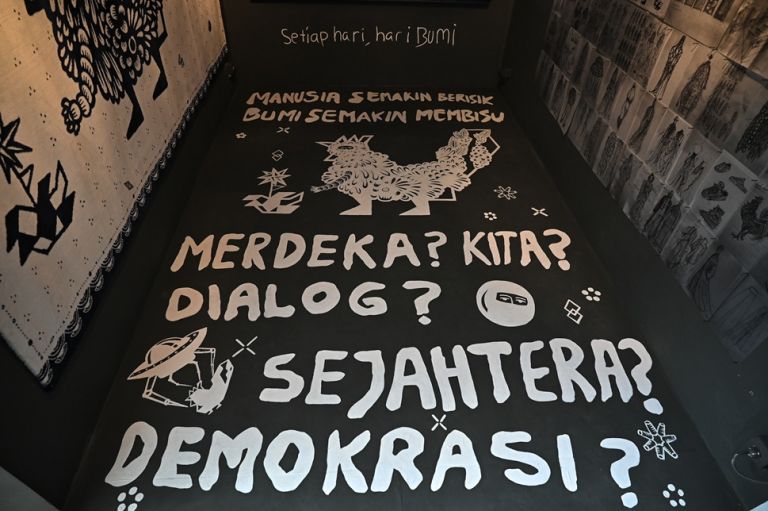 Setiap hari, hari Bumi
MANUSIA SEMAKIN BERISIK
BUMI SEMAKIN MEMBISU
MERDEKA? KITA?
DIALOG?
SEJAHTERA?
DEMOKRASI?